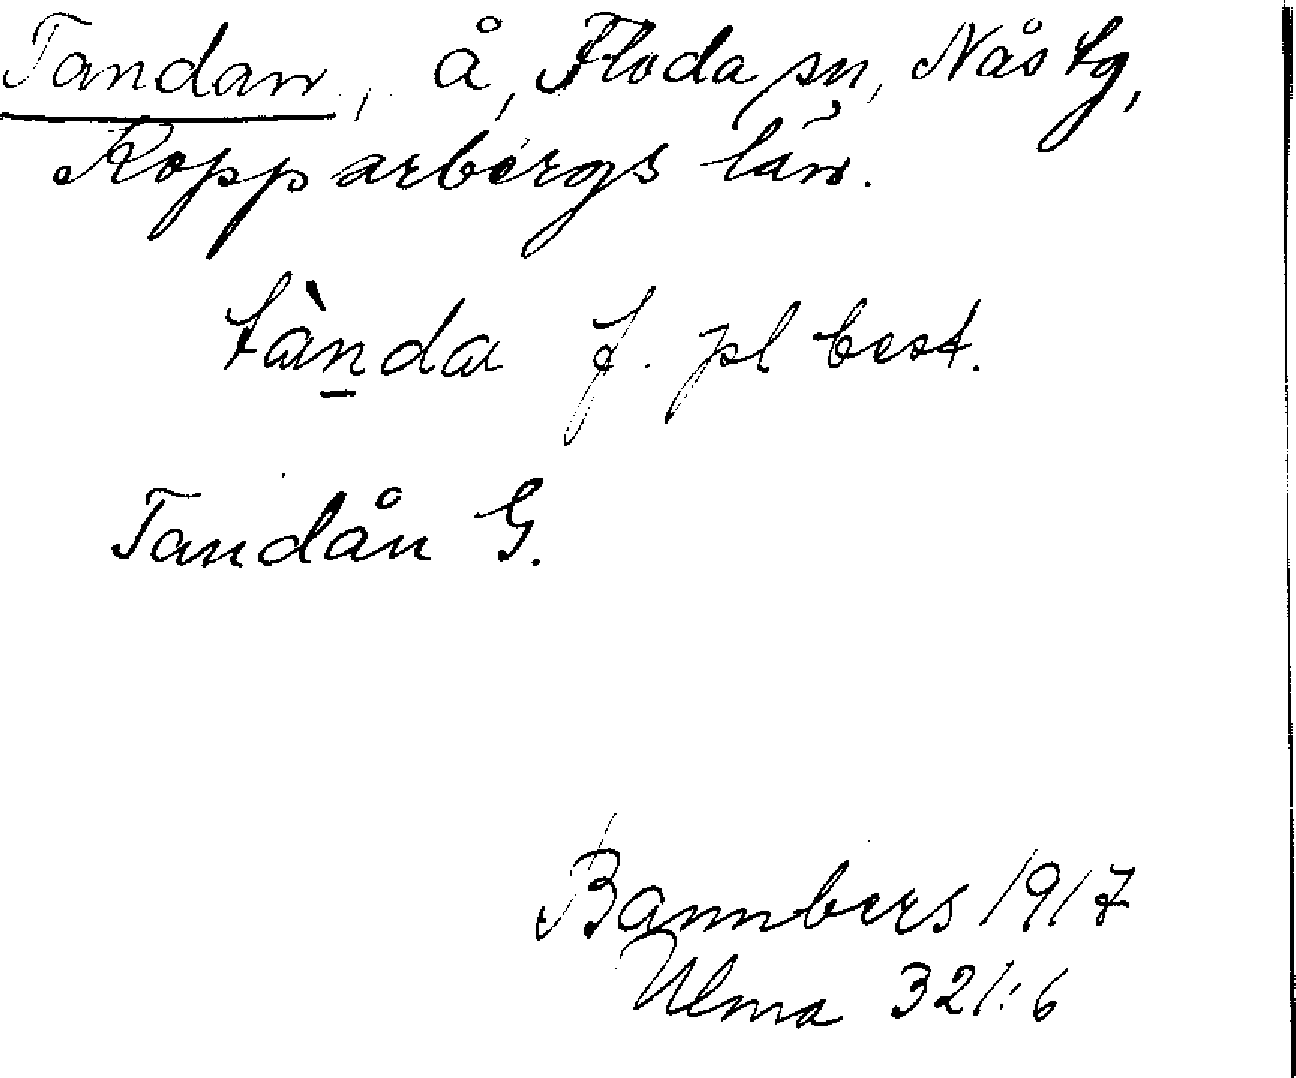 Tandan, å, Floda sn, Nås tg,
Kopparbergs län.
tàn̲da f. pl best.
Tandån G.
Bannbers 1917
Ulma 321:6